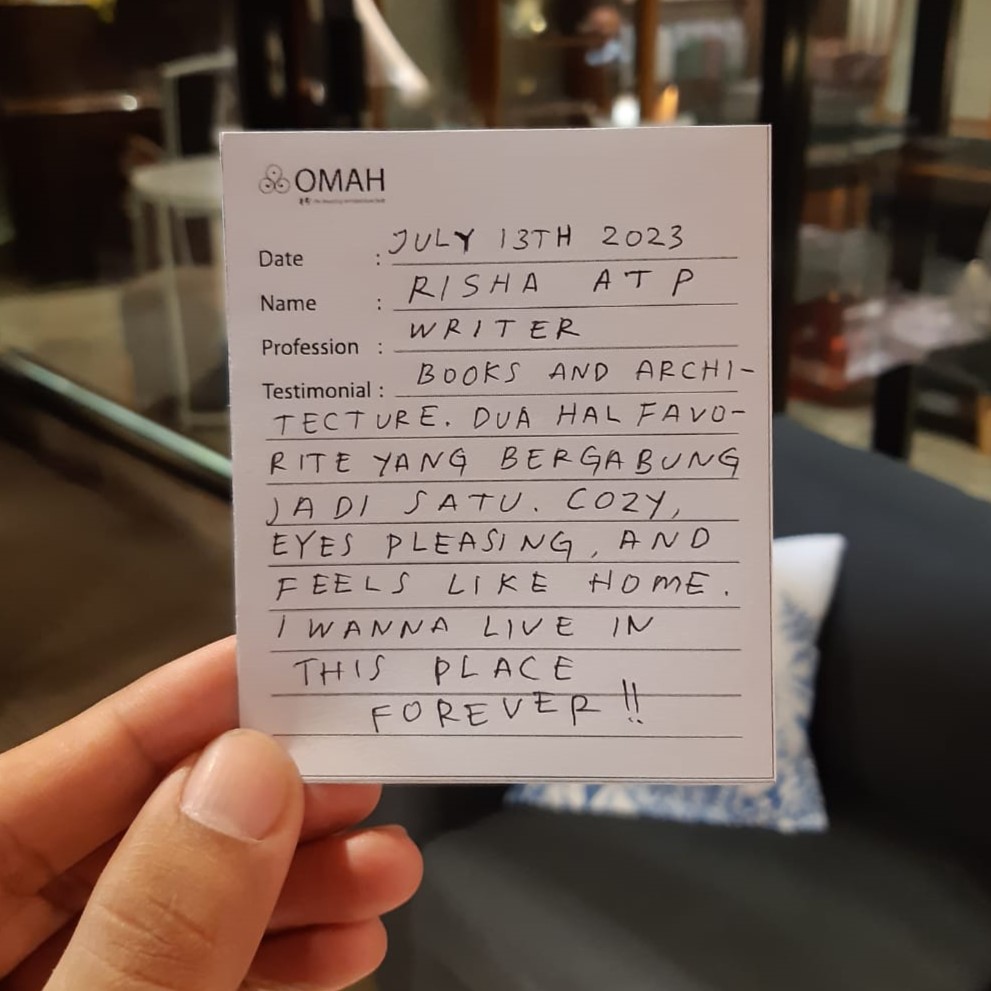 OMAH
Date : JULY 13TH 2023
Name : RISHA ATP
Profession : WRITER
Testimonial : BOOKS AND ARCHI-
TECTURE. DUA HAL FAVO-
RITE YANG BERGABUNG
JADI SATU. COZY,
EYES PLEASING, AND
FEELS LIKE HOME.
I WANNA LIVE IN
THIS PLACE
FOREVER!!